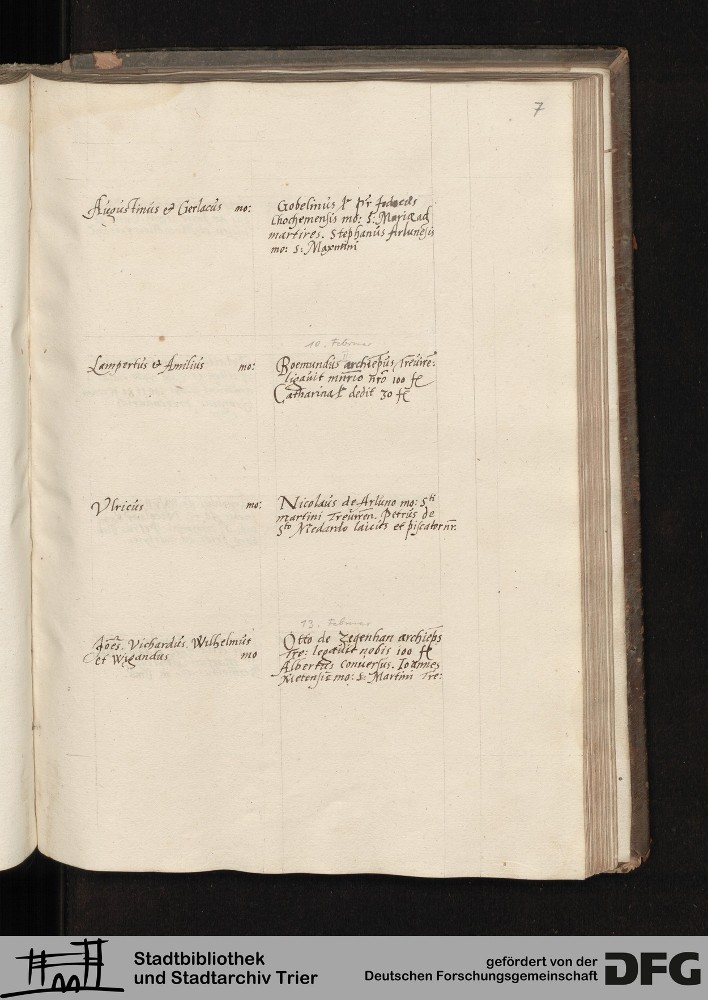 7
Augustinus et Gerlacus mo:
Gobelinus pr Jodocus
Chochemensis mo: S: Mariae ad
martires. Stephanus Arlunensis
mo: S: Maximini
10. Februar
Lampertus et Amilius mo:
Boemundus archiepus Treuire:
ligauit mnrio nro 100 fl
Catharina dedit 30 fl
Vlricus mo:
Nicolaus de Arluno mo: Sti
martini Treuiren. Petrus de
Sto Medardo laicus et piscator nr.
13. Februar
Joes. Vichardus. Wilhelmus
et Wigandus mo
Otto de Zegenhan archieps
Tre: legauit nobis 100 fl
Albertus conuersus. Ioannes
Metensis mo: S: Martini Tre:
Stadtbibliothek
und Stadtarchiv Trier
gefördert von der
Deutschen Forschungsgemeinschaft
DFG